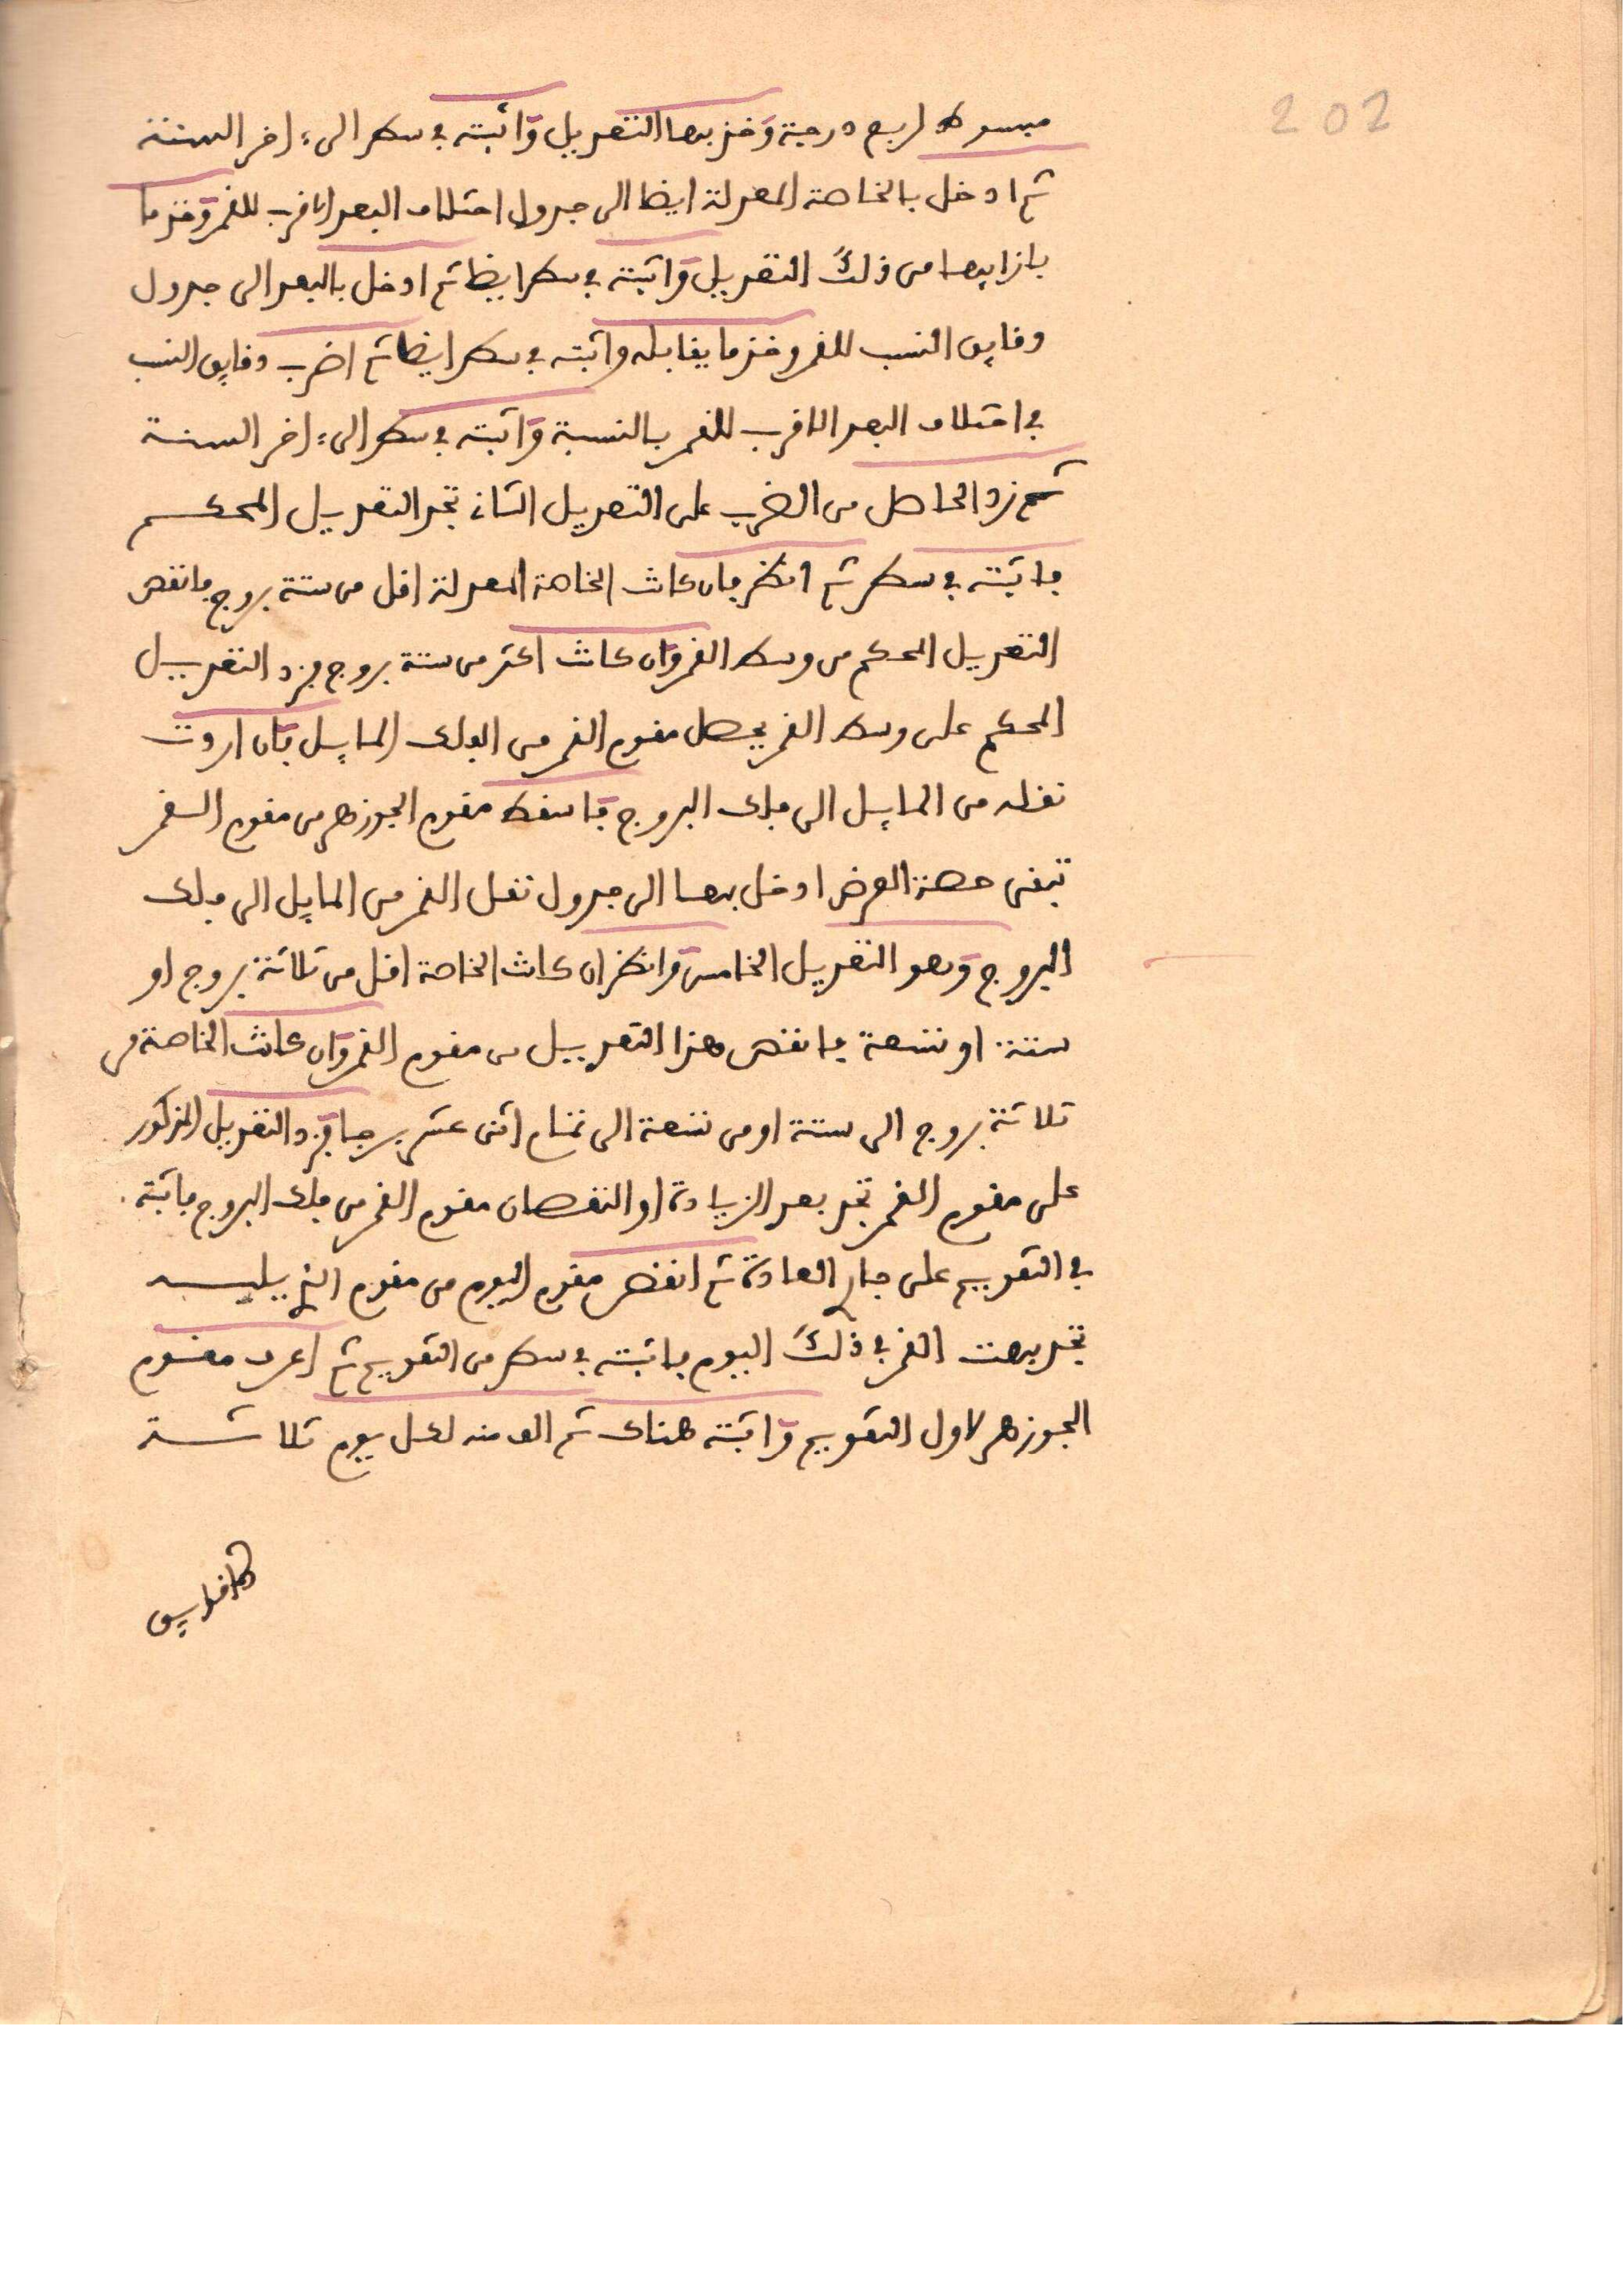 202
مبسوط لربع درجة وخذ بها التعديل واثبته في سطر الى ءاخر السنة
ثم ادخل بالخاصة المعدلة ايضا الى جدول اختلاف البعد الاقرب للقمر وخذ ما
بازايها من ذلك التعديل واثبته في سطر ايضا ثم ادخل بالبعد الى جدول
دقايق النسب للقمر وخذ ما يقابله واثبته في سطر ايضا ثم اضرب دقايق النسب
في اختلاف البعد الاقرب للقمر بالنسبة واثبته في سطر الى ءاخر السنة
ثم زد الحاصل من الضرب على التعديل الثاني تجد التعديل المحكم
فاثبته في سطر ثم انظر فان كانت الخاصة المعدلة اقل من ستة بروج فانقص
التعديل المحكم من وسط القمر وان كانت اكثر من ستة بروج فزد التعديل
المحكم على وسط القمر يحصل مقوم القمر من الفلك المايل فان اردت
نقله من المايل الى فلك البروج فاسقط مقوم الجوزهر من مقوم القمر
تبقى حصة العرض ادخل بها الى جدول نقل القمر من المايل الى فلك
البروج وهو التعديل الخامس وانظر ان كانت الخاصة اقل من ثلاثة بروج او
ستة او تسعة فانقص هذا التعديل من مقوم القمر وان كانت الخاصة من
ثلاثة بروج الى ستة او من تسعة الى تمام اثنى عشر برجا فزد التعديل المذكور
على مقوم القمر تجد بعد الزيادة او النقصان مقوم القمر من فلك البروج فاثبته
في التقويم على جاري العادة ثم انقص مقوم اليوم من مقوم الذي يليه
تجد بهت القمر في ذلك اليوم فاثبته في سطر من التقويم ثم اعرف مقوم
الجوزهر لاول التقويم واثبته هناك ثم الق منه لكل يوم ثلاثة
دقايق